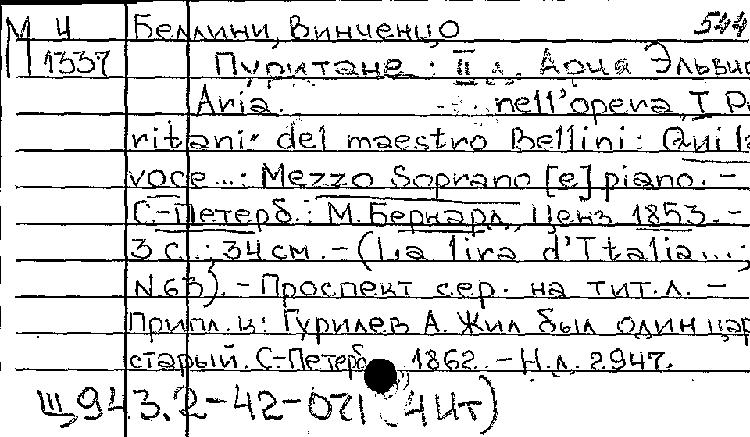 М Ч Беллини, Винченцо 544
1337 Пуритане: II д. Ария Эльви
Aria. nell'opera I P
ritani" del maestro Bellini: Qui la
voce...: Mezzo Soprano [e] piano. –
С.-Петерб.: М. Бернард, Ценз. 1853. –
3 с.; 34 см. – (La lira d'Italia...;
N63). – Проспект сер. на тит. л. –
Припл. к: Гурилев А. Жил был один цар
старый. С.-Петерб. 1862. – Н.д. 2947.
Щ943.2-42-021 (4Ит)